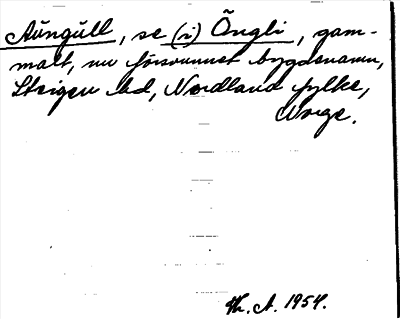 Aŭngŭll, se (i) Õngli, gam-
malt, nu försvunnet bygdsnamn,
Steigen hd, Nordland fylke,
Norge.
Th. A. 1954.